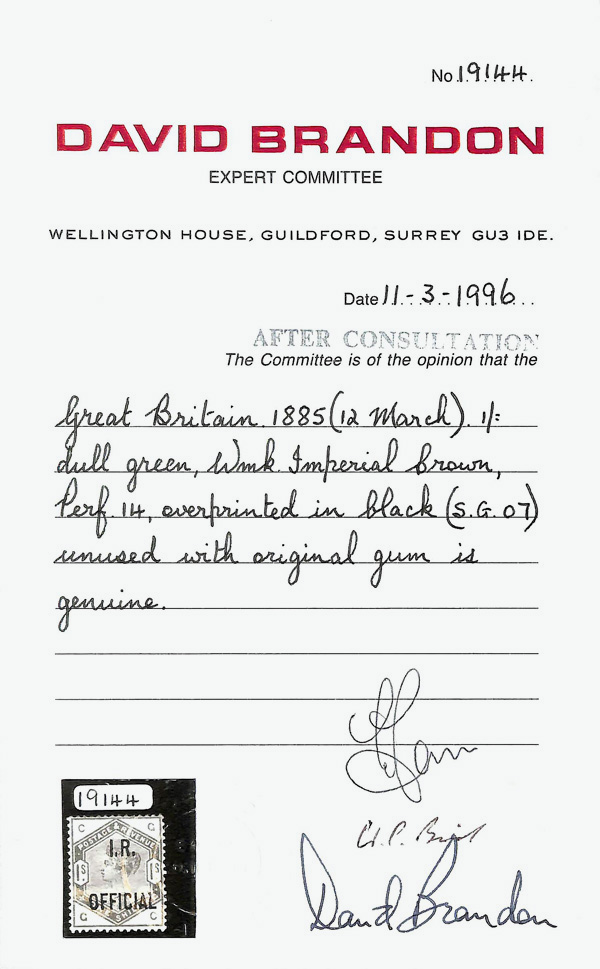 No 19144
DAVID BRANDON
EXPERT COMMITTEE
WELLINGTON HOUSE, GUILDFORD, SURREY GU3 1DE.
Date 11-3-1996
AFTER CONSULTATION
The Committee is of the opinion that the
Great Britain 1885 (12 March). 1/=
dull green, Wmk Imperial Crown,
Perf. 14, overprinted in black (S.G. O7)
unused with original gum is
genuine.
19144
G G
POSTAGE & REVENUE
I.R.
1S 1S
OFFICIAL
G G
David Brandon